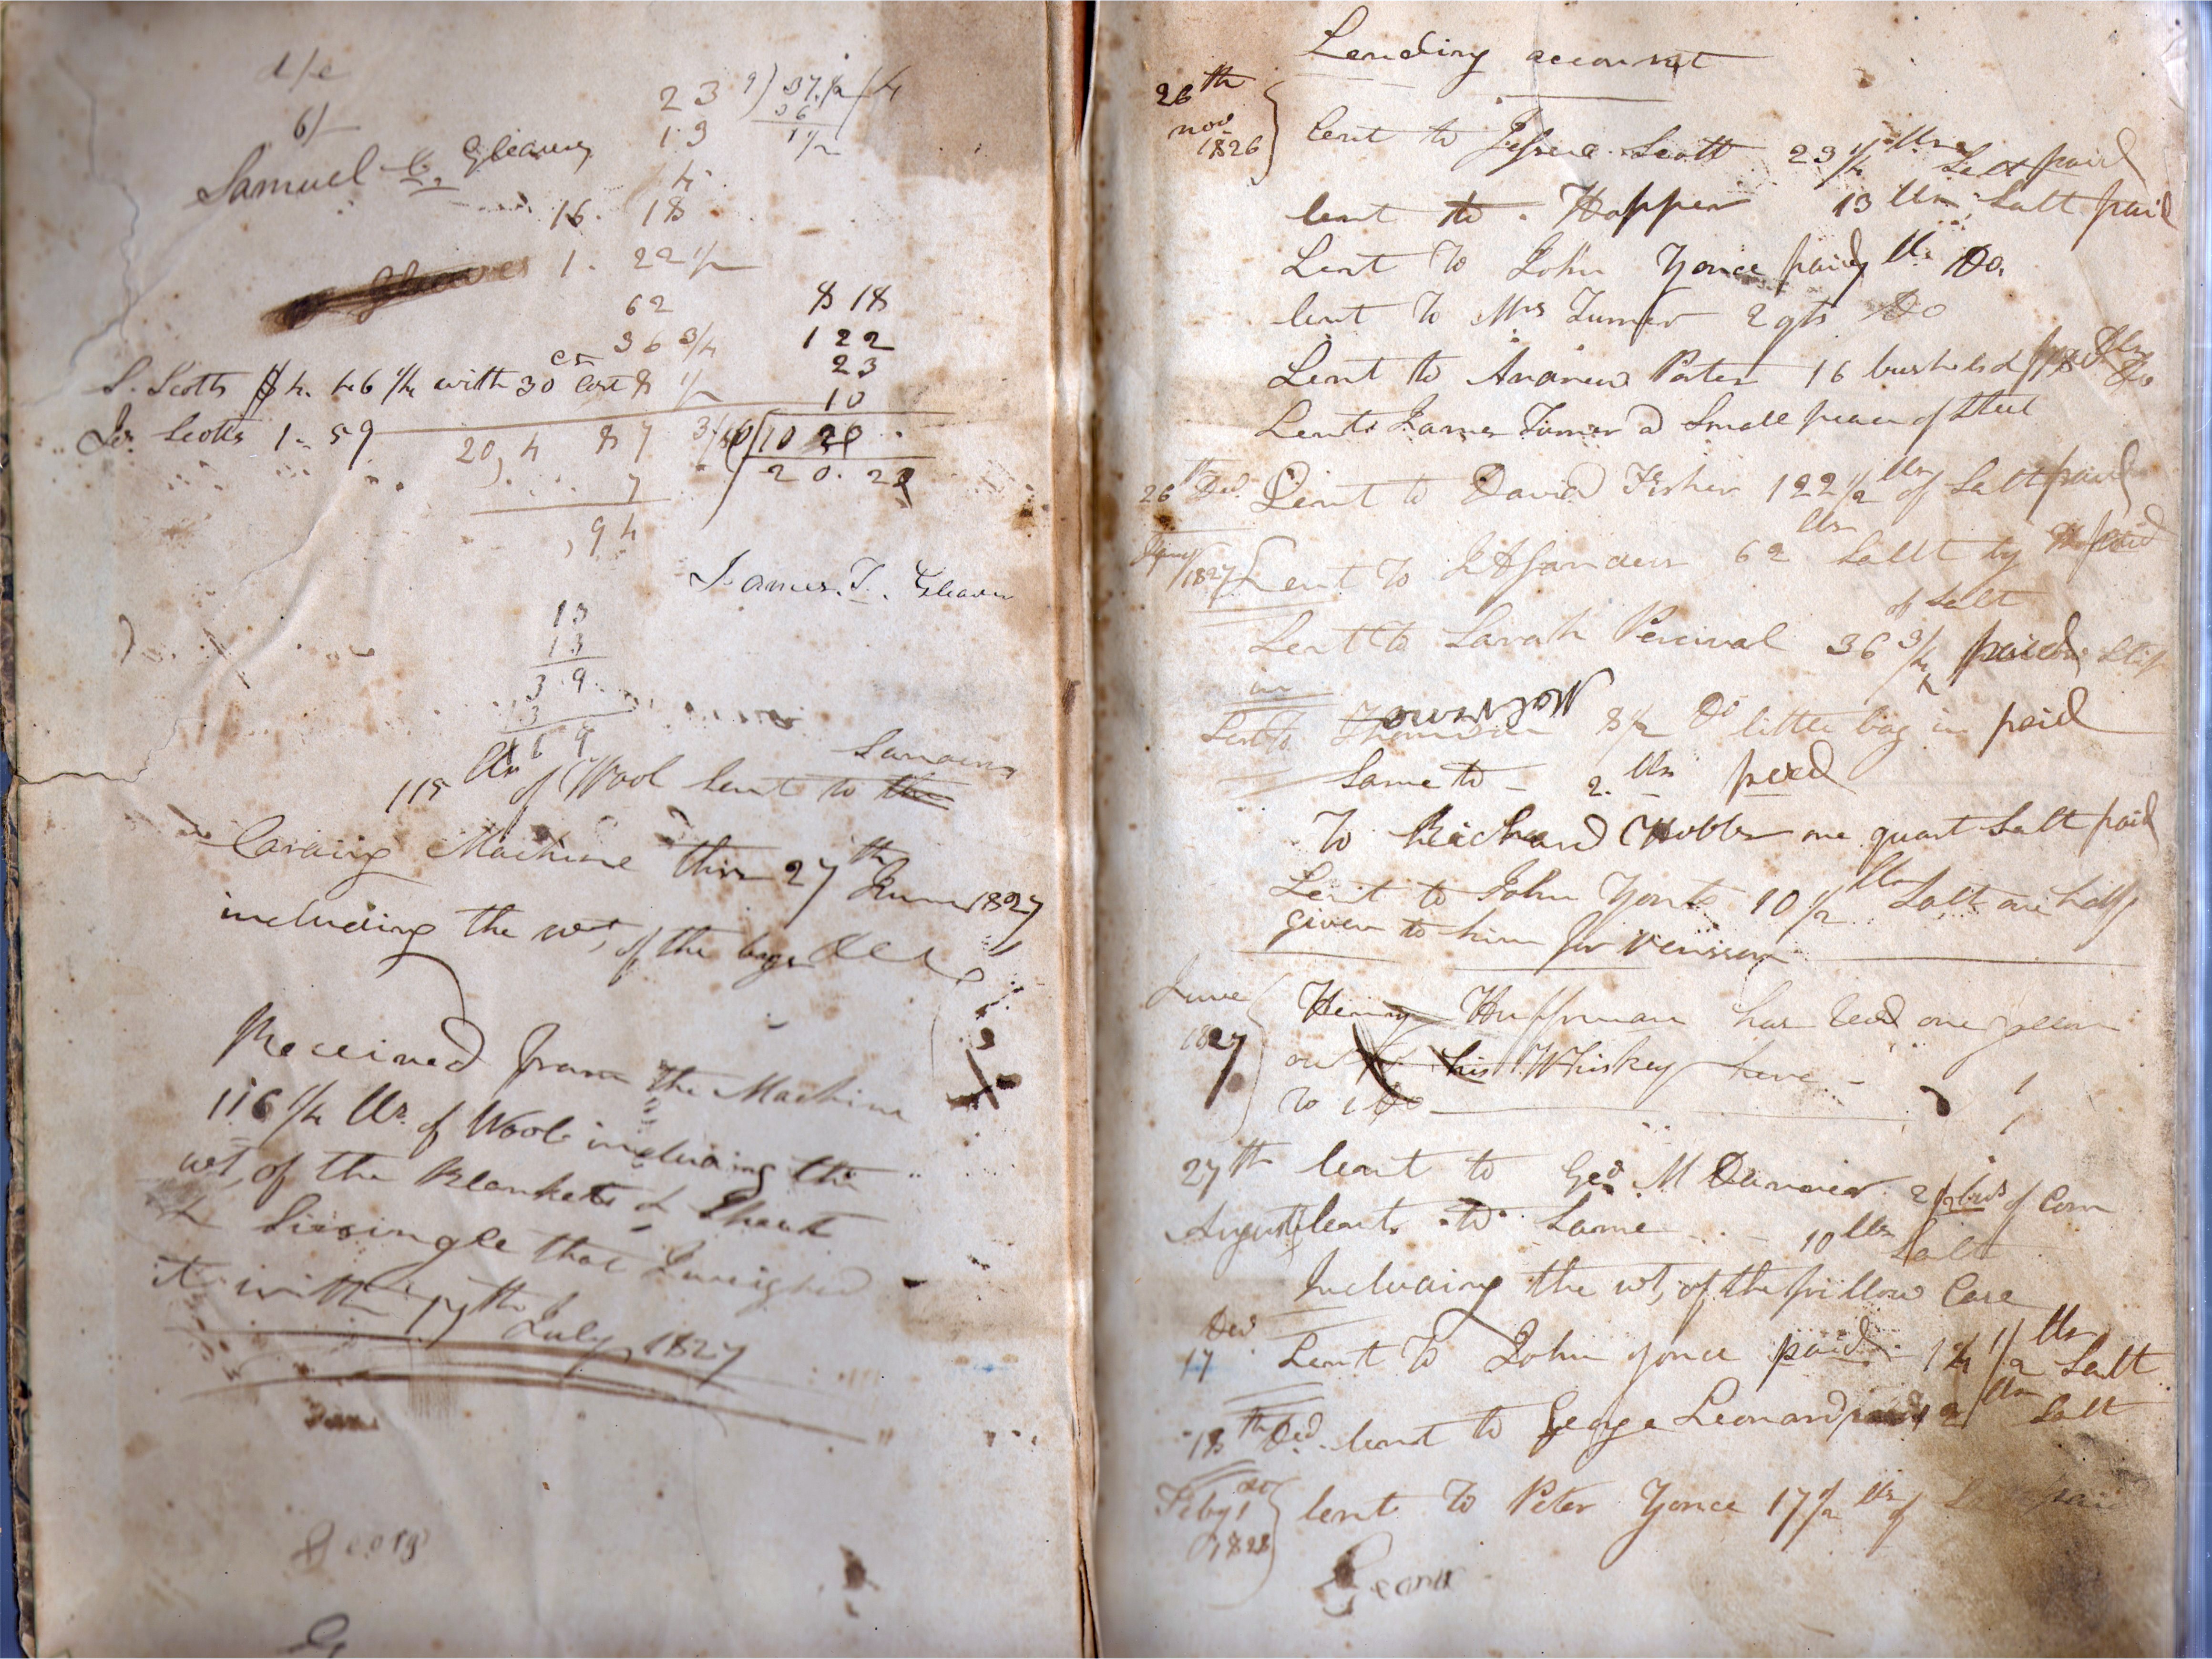 d/e
6/
23 9) 37 1/2 (4
36
1 1/2
Samuel C. Gleaves
13
4
16. 18
1. 22 1/2
62
8 18
36 3/4
122
23
S. Scotts $4. 46 1/4 with 30 cost 8 1/2
10
Jos Scotts 1-59
20,4 87
10 20
20.22
7
,94
James. T. Gleaves
13
13
39
13
169
Sanders
115 lbs of Wool sent to the
Carding Machine this 27th June 1827
including the wt, of the bags &c
Received from the Machine
116 1/4 lbs. of Wool including the
wt, of the Blankets & Sheet
& Sirsingle that I weighed
it with 17th
July 1827
Georg
Lending account
26th
nov
1826
lent to Jesse Scott 23 1/4 lbs Salt paid
lent to Hopper 13 lbs Salt paid
Lent To John Yonce paid lbs Do.
lent To Mrs Turner 2 qts Do
Lent to Andrew Porter 16 bushels
Lent James Turner a Small peace of Steel
26th Decr Lent to David Fisher 122 1/2 lbs of Salt paid
Jany 1827 Lent To 62 lbs Sallt by paid
of Salt
Lent to Sarah Percival 36 3/4 paid
Lent to 8 1/2 Do little bag in paid
Same to - 2. lbs paid
To Richard Hobbs one quart Salt paid
Lent to John Yonts 10 1/2 lbs Salt one half
given to him for venison
June
1827
Henry Huffman has had one gallon
out of his Whiskey here - 1
To 1 Do 1
27th lent to Geo M Daniel 2 1/2 bus of Corn
August lent to Same - 10 lbs Salt
Including the wt, of the pillow Case
Decr
17 Lent To John yonce paid 14 1/2 lbs Salt
18th Decr lent to George Leonard paid 12 lbs Salt
Feby 1
1828
lent To Peter Yonce 17 1/2 lbs of Salt paid